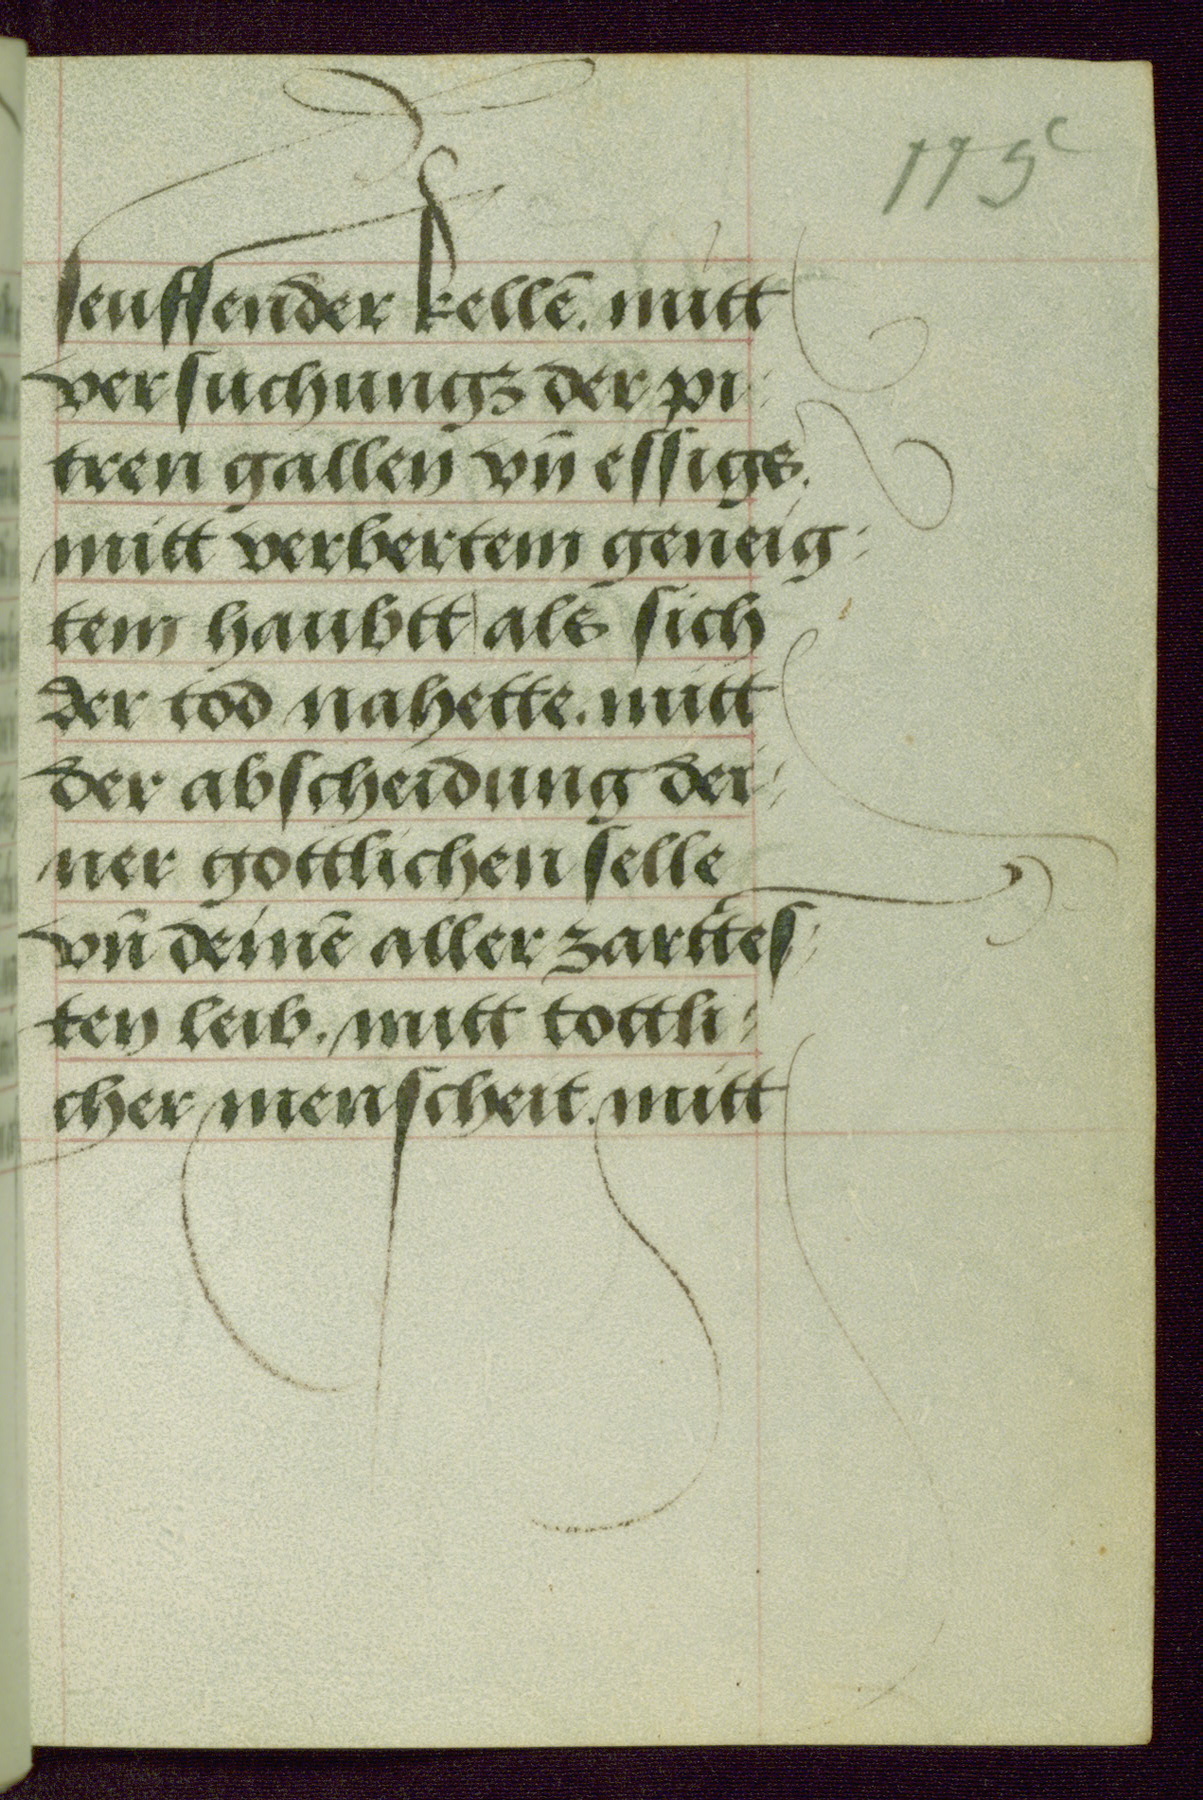 115c
seuffender kellē. mitt
versuchungʒ der pi⸗
tren gallen vn̄ essigs.
mitt verbertem geneig⸗
tem haubtt als sich
der tod nahette. mitt
der abscheidung dei⸗
ner gottlichen selle
vn̄ deinē aller zarttes⸗
ten leib. mitt tottli⸗
cher menscheit. mitt